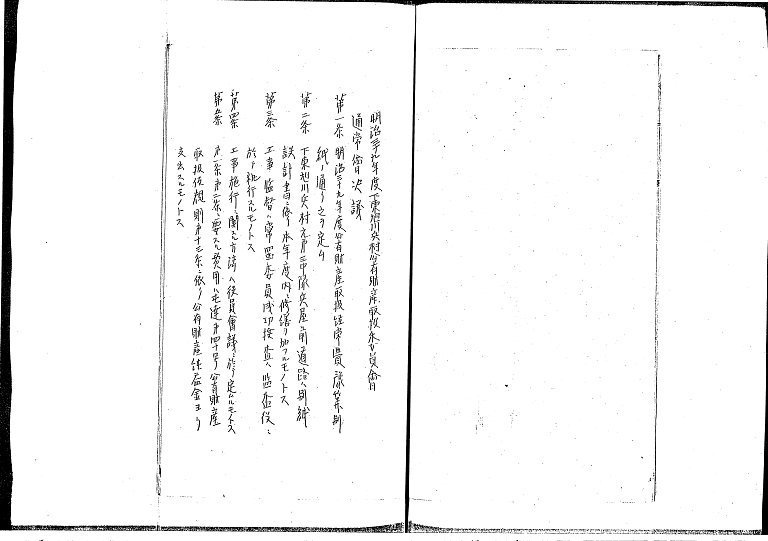 明治三十九年度下東旭川兵村公有財産取扱委員會
通常會決議
第一条 明治三十九年度公有財産取扱経常費豫算別
紙ノ通リ之ヲ定ム
第二条 下東旭川兵村元第三中隊兵屋前道路ハ別紙
設計書ニ依リ本年度内ニ修繕ヲ加フルモノトス
第三条 工事監督ハ常置委員成功検査ハ監査役ニ
於テ執行スルモノトス
第四条 工事施行ニ関スル方法ハ役員會議ニ於テ定ムルモノトス
第五条 第一条第二条ニ要スル費用ハ達第四十号公有財産
取扱仮規則第十三条ニ依リ公有財産仕益金ヨリ
支出スルモノトス